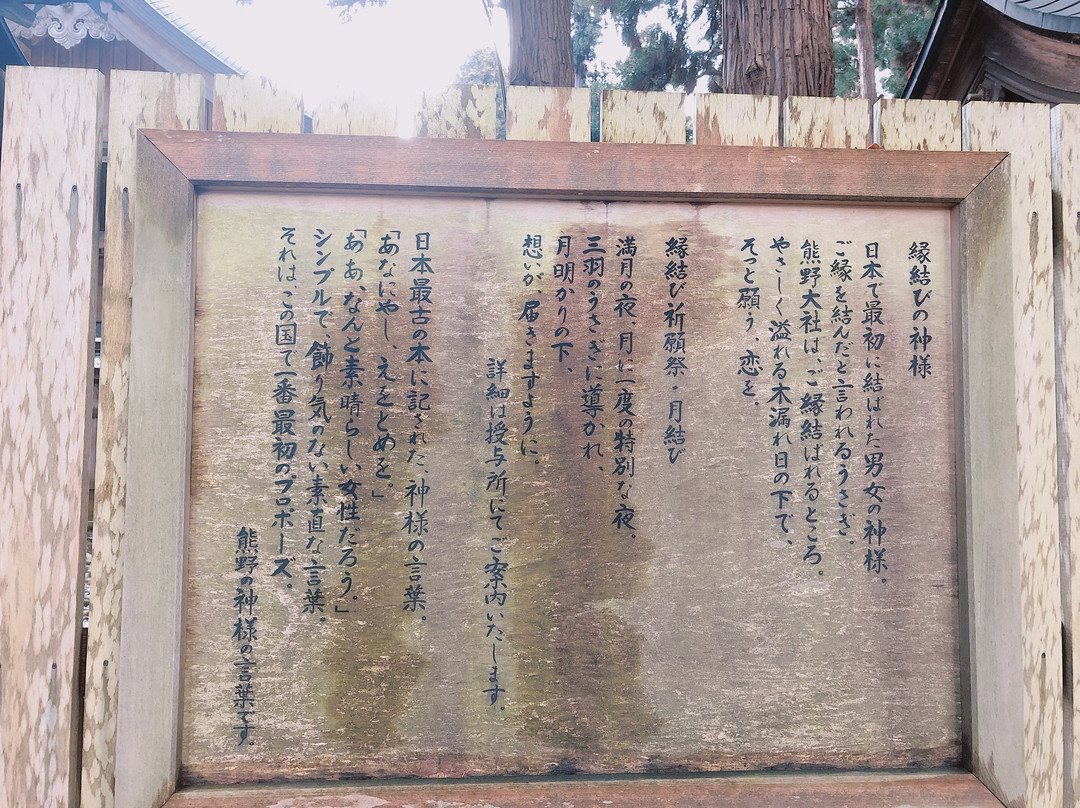 縁結びの神様
日本で最初に結ばれた男女の神様。
ご縁を結んだと言われるうさぎ。
熊野大社は、ご縁結ばれるところ。
やさしく溢れる木漏れ日の下で、
そっと願う、恋を。
縁結び祈願祭・月結び
満月の夜、月に一度の特別な夜。
三羽のうさぎに導かれ、
月明かりの下、
想いが、届きますように。
詳細は授与所にてご案内いたします。
日本最古の本に記された、神様の言葉。
「あなにやし、えをとめを。」
「あぁ、なんと素晴らしい女性だろう。」
シンプルで、飾り気のない素直な言葉。
それは、この国で一番最初のプロポーズ。
熊野の神様の言葉です。